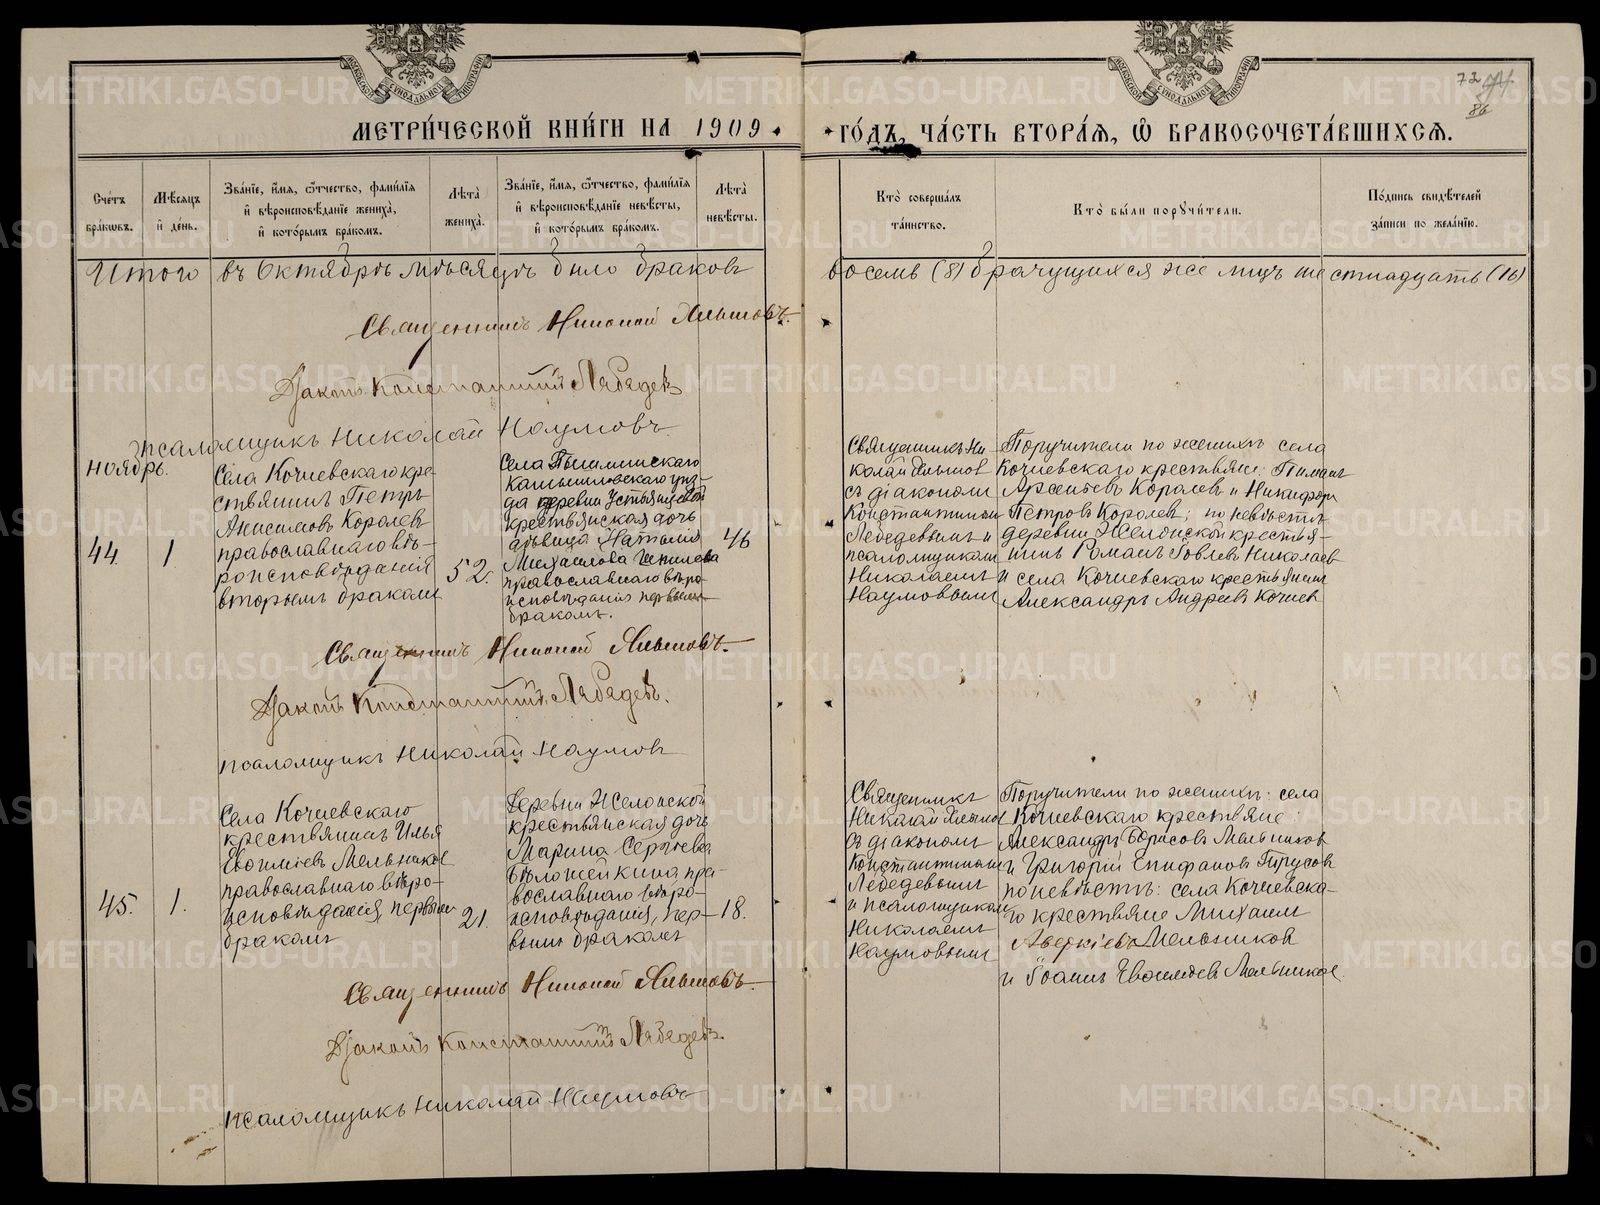 МОСКОВСКОЙ СѴНОДАЛЬНОЙ ТИПОГРАФІИ
МОСКОВСКОЙ СѴНОДАЛЬНОЙ ТИПОГРАФІИ
72
86
МЕТРИ́ЧЕСКОЙ КНИ́ГИ НА 1909
ГО́ДЪ, ЧА́СТЬ ВТОРА́Ѧ, Ѡ БРАКОСОЧЕТА́ВШИХСѦ.
Сче́тъ бра́кѡвъ.
Мѣ́сѧцъ и҆ де́нь.
Зва́нїе, и҆́мѧ, ѻ҆́тчество, фами́лїѧ и҆ вѣроисповѣ́данїе жениха̀, и҆ кото́рымъ бра́комъ.
Лѣ́та жениха̀.
Зва́нїе, и҆́мѧ, ѻ҆́тчество, фами́лїѧ и҆ вѣроисповѣ́данїе невѣ́сты, и҆ кото́рымъ бра́комъ.
Лѣ́та невѣ́сты.
Кто̀ соверша́лъ та́инство.
Кто̀ бы́ли порꙋчи́тели.
По́дпись свидѣ́телей за́писи по жела́нїю.
Итого въ Октябрѣ мѣсяцѣ было браковъ восемь (8) брачущихся же лицъ шестнадцать (16)
Священникъ Николай
Діаконъ Константинъ Лебедевъ
Псаломщикъ Николай Наумовъ
Ноябрь.
44
1
Села Кочневскаго кре-
стьянинъ Петръ
Анисимовъ Королев
православнаго вѣ-
роисповѣданія
вторымъ бракомъ
52.
Села Пышминскаго
Камышловскаго уѣз-
да деревни Устьянцевой
крестьянская дочь
дѣвица Наталія
Михаилова
православнаго вѣро-
исповѣданія первымъ
бракомъ.
46
Священникъ Ни-
колай
съ діакономъ
Константиномъ
Лебедевымъ и
псаломщикомъ
Николаемъ
Наумовымъ
Поручители по женихѣ села
Кочневскаго крестьяне:
Арсентьев Королев и Никифор
Петров Королев; по невѣстѣ
деревни Жолонской крестья-
нинъ Роман Іовлев Николаев
и села Кочневскаго крестьянин
Александръ Андреев Кочнев
Священникъ Николай
Діаконъ Константинъ Лебедевъ.
псаломщикъ Николай Наумов
45.
1.
Села Кочневскаго
крестьянинъ Илья
Евѳиміев Мельников
православнаго вѣро-
исповѣданія, первым
бракомъ
21.
Деревни Жолонской
крестьянская дочь
Марина Сергѣева
Бѣлоножкина пра-
вославнаго вѣро-
исповѣданія, пер-
вымъ бракомъ
18.
Священникъ
Николай
съ діакономъ
Константиномъ
Лебедевымъ
и псаломщикомъ
Николаемъ
Наумовымъ
Поручители по женихѣ: села
Кочневскаго крестьяне:
Александръ Борисов Мельников
и Григорій Епифанов
по невѣстѣ: села Кочневска-
го крестьяне Михаилъ
Аверкіевъ Мельников
и Іоаннъ Евѳиміев Мельников
Священникъ Николай
Діаконъ Константинъ Лебедевъ.
псаломщикъ Николай Наумовъ
METRIKI.GASO-URAL.RU